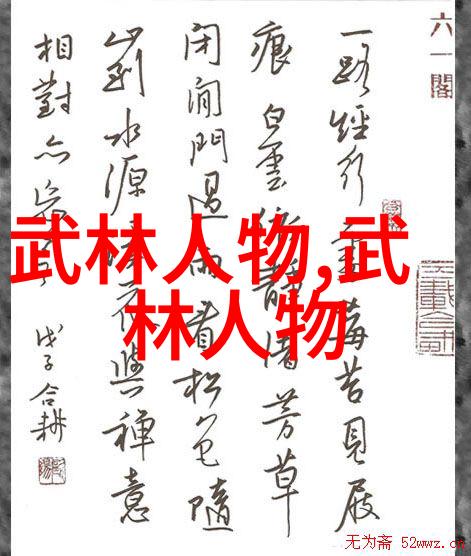 六一閣
一路經行莓苔見屐
痕白雲靜渚芳草
閉閒門過雨看松色隨
山到水源花與禪意
相對亦
戊子合耕
武林人物,武
林人物
无为斋 52wwz.c